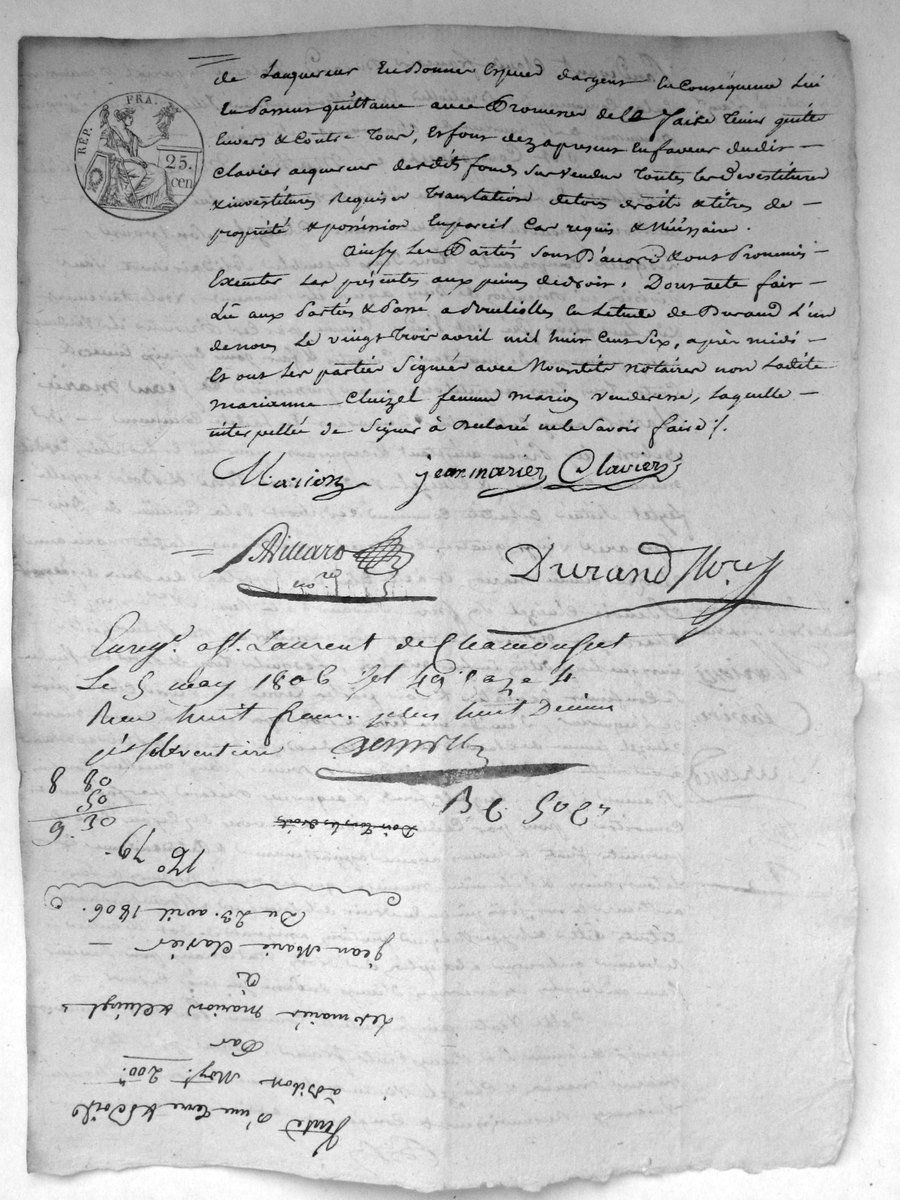 RÉP. FRA.
25.
cen
de Lacquereur En Bonnes Espece dargent En Conséquence Lui
En Passent quittance avec Promesse de La faire Tenir quitte
Envers & Contre Tous, Et font dezapresent En faveur dudit –
Clavier acquereur desdits fonds sur vendus Toutes les devestitures
& investitures Requises Translation de tous droits & titres de –
propriété & possession En pareil Cas requis & Nécéssaire.
ainsy Les Partés Sont D'accord & ont Promis
Executer Les présentes aux peines de droit. Dont acte fait –
Lû aux Parties & Passé, a En Létude de Durand L'un
de nous Le vingt Trois avril mil huit Cent Six, après midi –
Et ont Les parties Signées avec Nousdits notaires non Ladite
marianne Cluizel femme Marion Venderesse, Laquelle –
interpellée de Signer à Déclaré ne le Savoir faire ./.
Marion jean marier Clavier
Villard
nore
Durand Nore
Enregt. à St. Laurent de Chamousset
Le 5 may 1806 fol 49 page 4
Reçu huit francs plus huit Décimes
2205
Doit Tous les Droits
8 80
Nº 79.
Du 23. avril 1806.
jean Marie Clavier –
à
Les mariés marion & Cluizel
Par
Moyt. 200 #
Vente d'une Terre & Bois